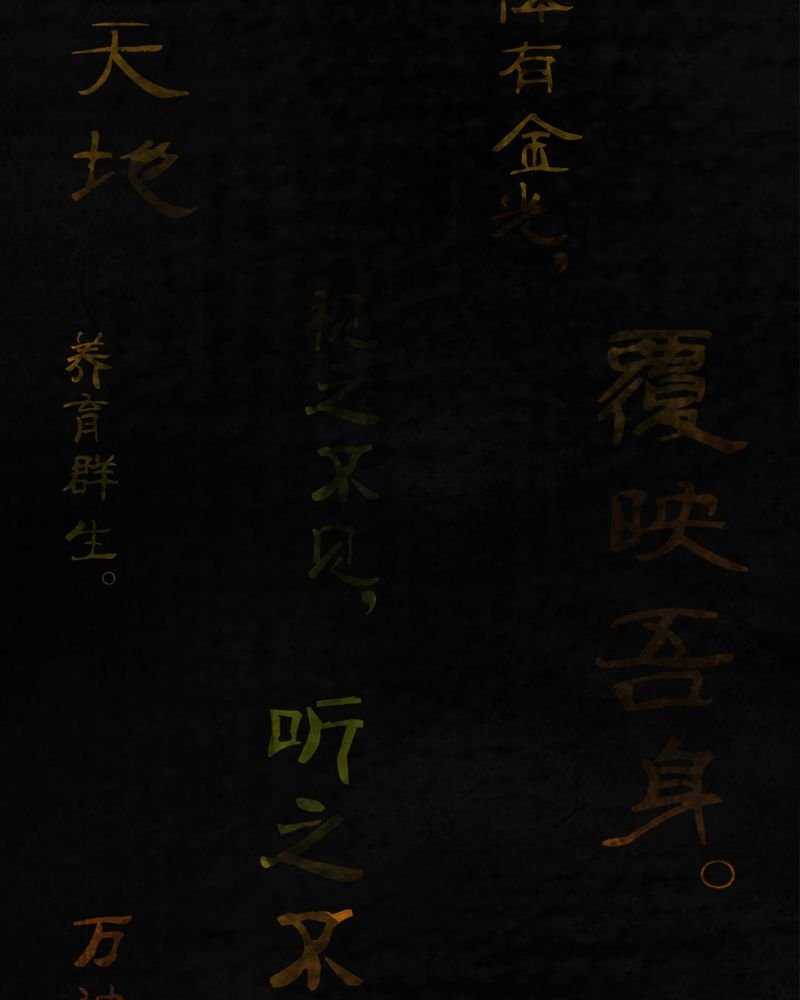 体有金光，
覆映吾身。
视之不见，
听之不
天地
养育群生。
万神